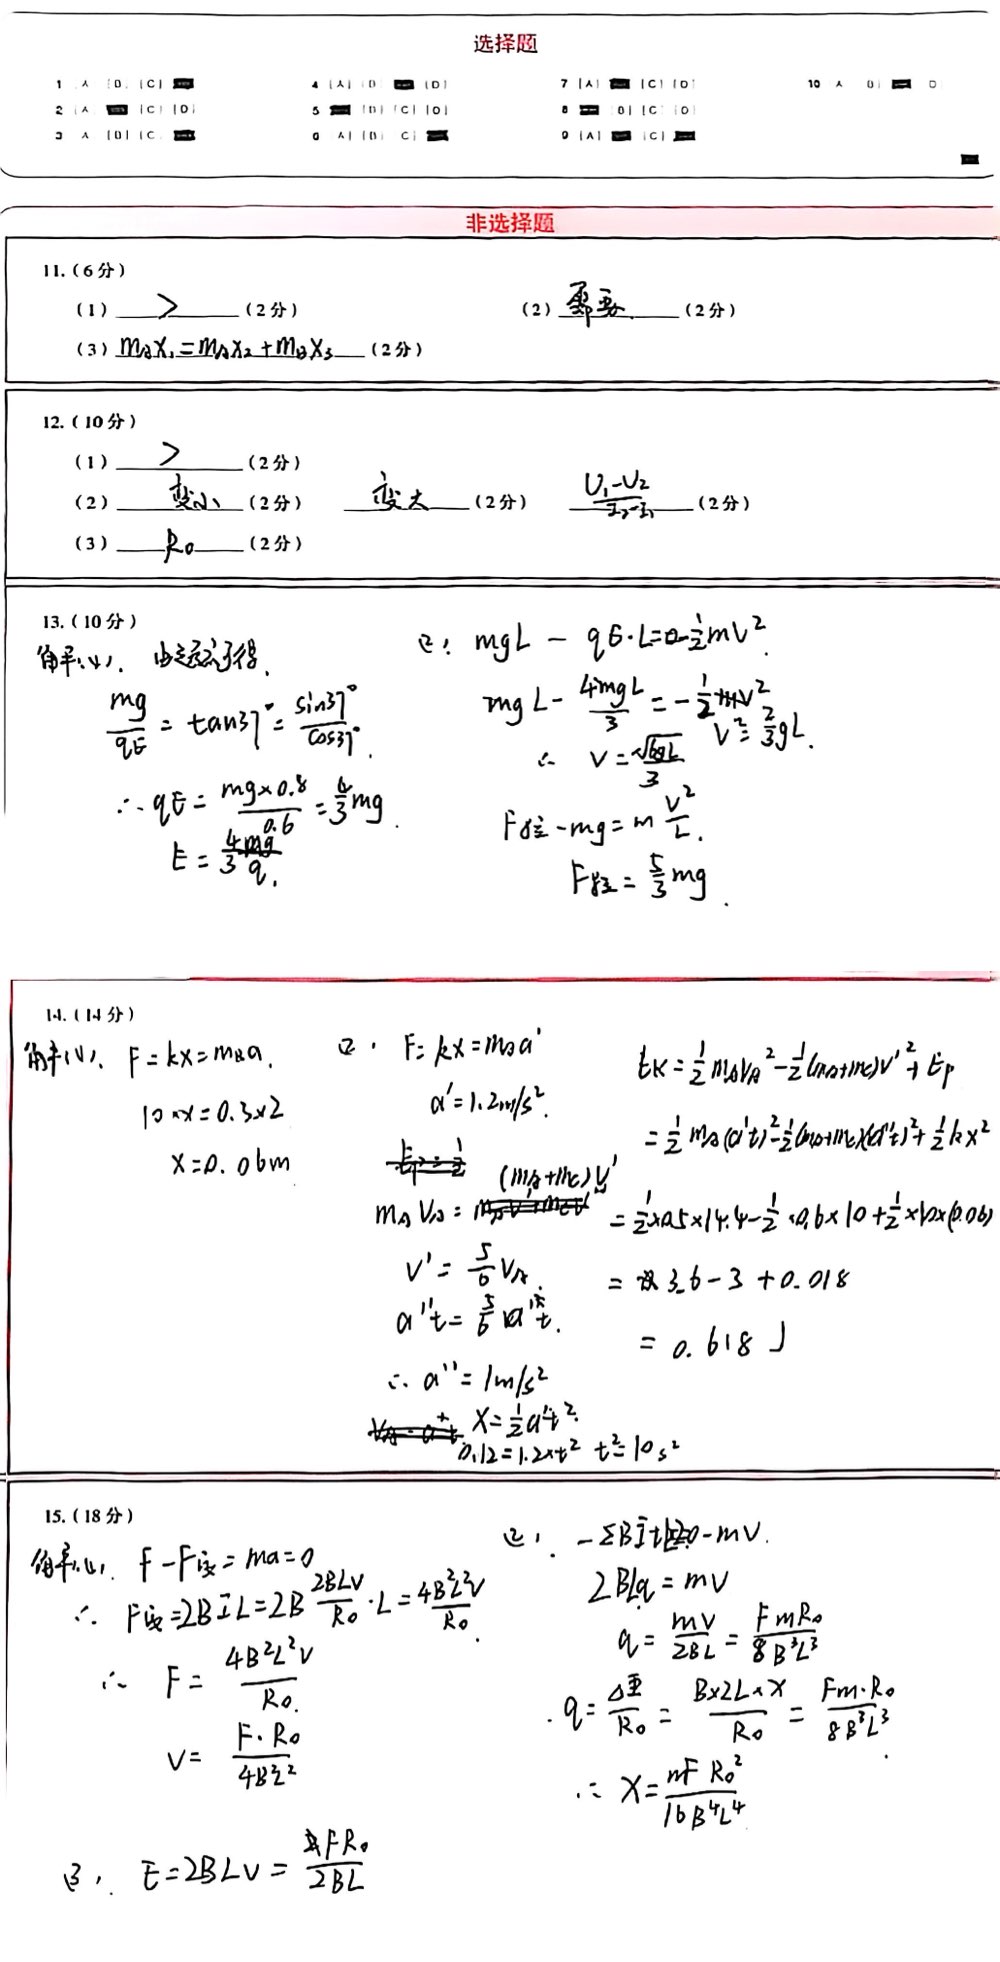 选择题
1 A [B] [C]
4 [A] [B] [D]
7 [A] [C] [D]
10 A B D
2 [A] [C] [D]
5 [B] [C] [D]
8 [B] [C] [D]
3 A [B] [C]
6 [A] [B] [C]
9 [A] [C]
非选择题
11.(6分)
(1) > (2分)
(2) 需要 (2分)
(3) mAx₁=mAx₂+mBx₃ (2分)
12.(10分)
(1) > (2分)
(2) 变小 (2分) 变大 (2分) (U₁-U₂)/(I₂-I₁) (2分)
(3) R₀ (2分)
13.(10分)
解:(1). 由运动得.
mg/qE = tan37° = sin37°/cos37°.
∴ qE = mg×0.8/0.6 = 4/3 mg.
E = 4mg/3q.
(2): mgL - qE·L=0-½mv².
mgL - 4mgL/3 = -½mv²
v²=⅔gL.
∴ v = √6gL/3
F拉-mg = m v²/L.
F拉 = 5/3 mg.
14.(14分)
解:(1). F=kx=mBa.
10×x=0.3×2
x=0.06m
(2). F=kx=mAa'
a'=1.2m/s².
mAvA = (mA+mC)v'
v' = 5/6 vA.
a''t = 5/6 a't.
∴ a''=1m/s²
x=½a't².
0.12=1.2×t² t²=10s²
Ek = ½mAvA² - ½(mA+mC)v'² + Ep
= ½mA(a't)² - ½(mA+mC)(a''t)² + ½kx²
= ½×0.5×14.4 - ½×0.6×10 + ½×10×(0.06)
= 3.6-3+0.018
= 0.618 J
15.(18分)
解:(1). F-F安=ma=0
∴ F安=2BIL=2B 2BLv/R₀ ·L = 4B²L²v/R₀.
∴ F = 4B²L²v/R₀.
v = F·R₀/4B²L²
(2). -2BĪtL=0-mv.
2BLq=mv
q = mv/2BL = FmR₀/8B³L³
q = ΔΦ/R₀ = B×2L×x/R₀ = Fm·R₀/8B³L³.
∴ x = mFR₀²/16B⁴L⁴
(3). E=2BLv = FR₀/2BL